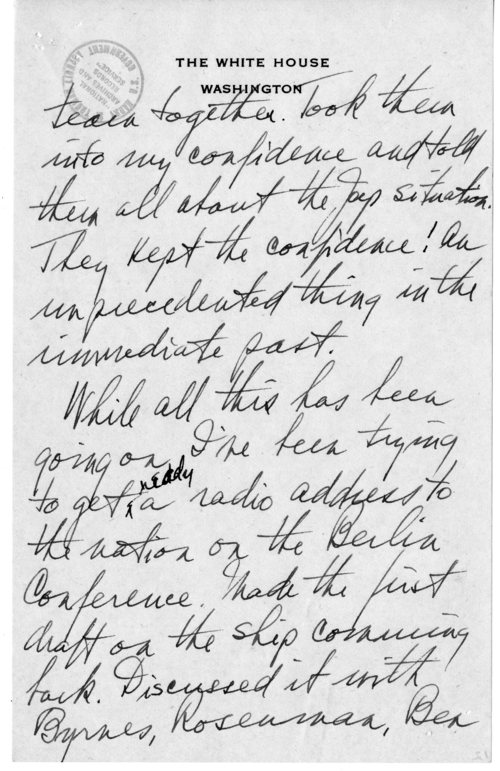 THE WHITE HOUSE
WASHINGTON
team together. Took them
into my confidence and told
them all about the Jap situation.
They kept the confidence! An
unprecedented thing in the
immediate past.
While all this has been
going on I've been trying
ready
to get a radio address to
the nation on the Berlin
Conference. Made the first
draft on the ship comming
back. Discussed it with
Byrnes, Rosenman, Ben